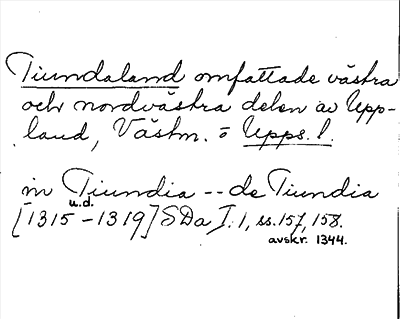 Tiundaland omfattade västra
och nordvästra delen av Upp-
land, Västm. o Upps. l.
in Tiundia -- de Tiundia
u.d.
[1315 - 1319] SDa I: 1, ss. 157, 158.
avskr. 1344.